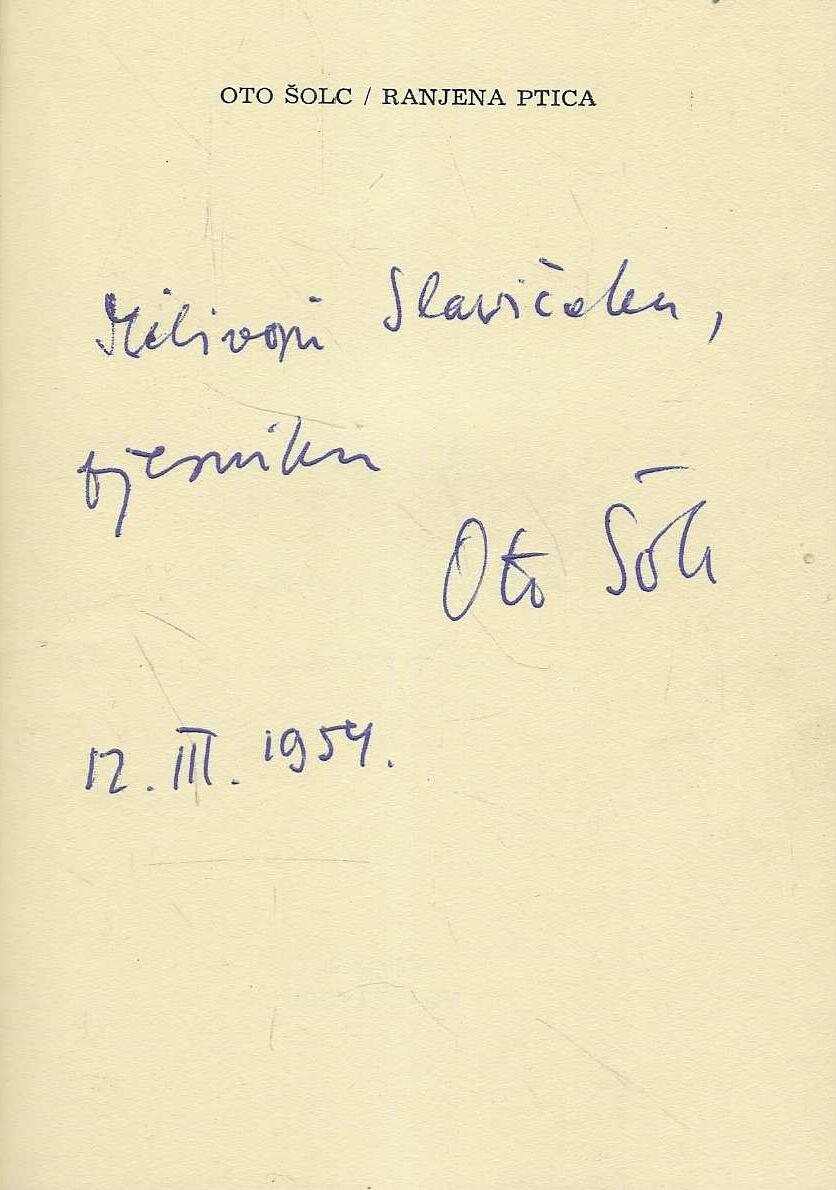 OTO ŠOLC / RANJENA PTICA
Milivoju Slavičeku,
pjesniku
Oto Šolc
12. III. 1954.